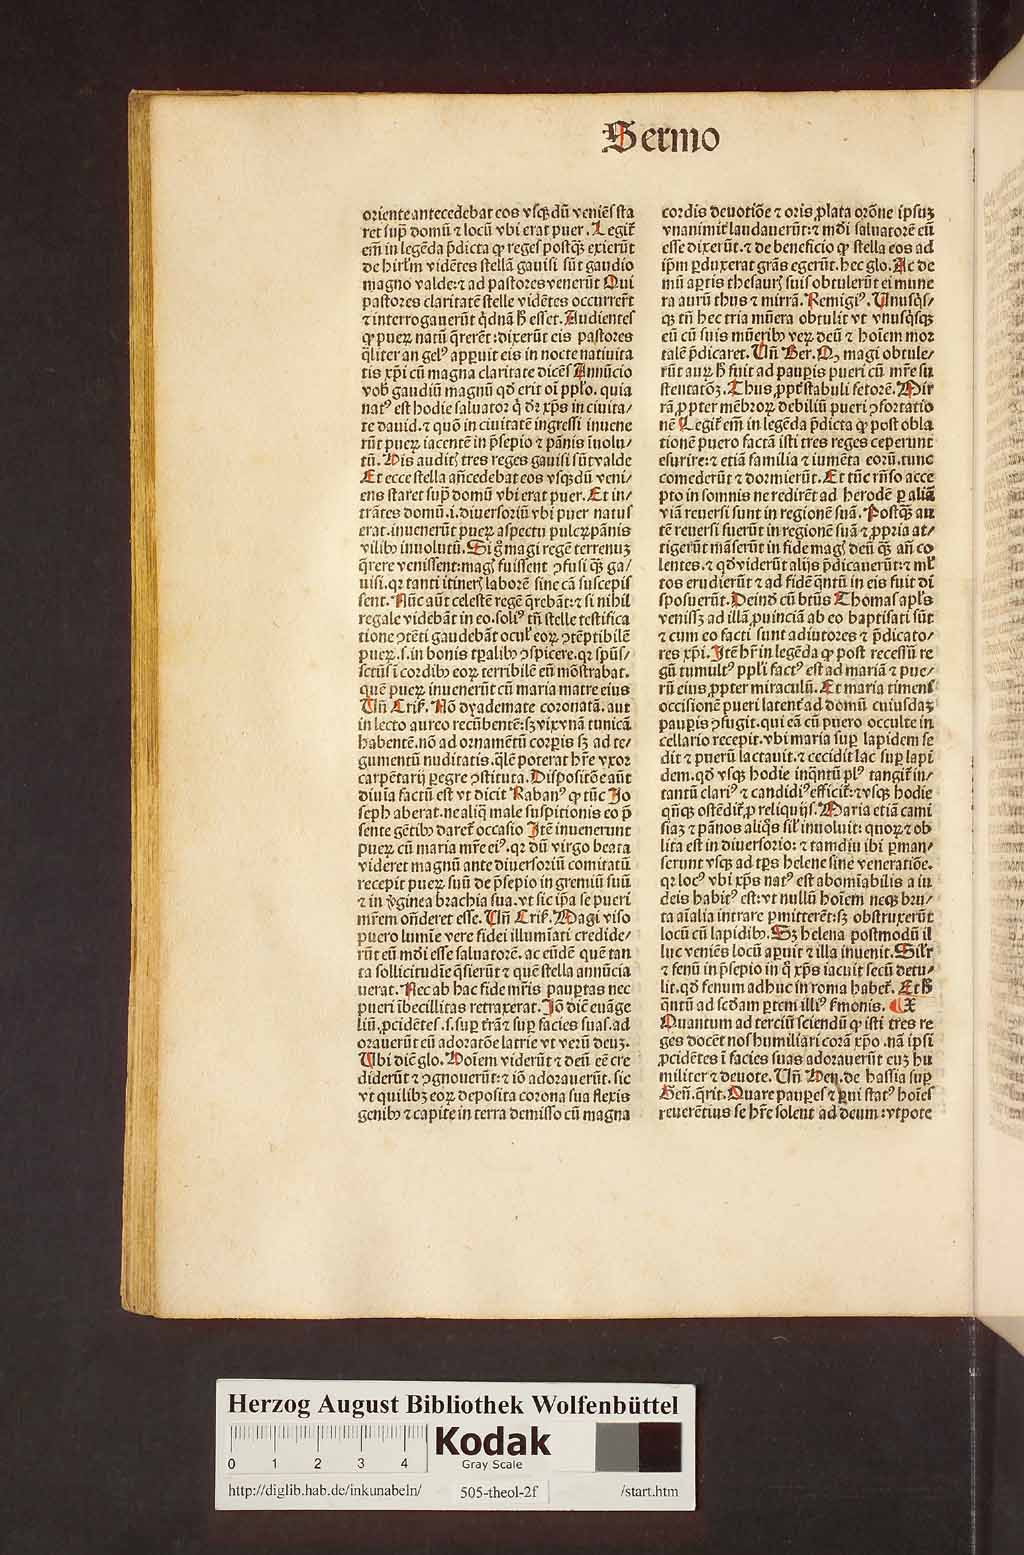 Sermo
oriente antecedebat eos vsqꝫ dū veniēs sta
ret suꝑ domū ⁊ locū vbi erat puer. Legit̃
em̄ in legēda p̄dicta ꝙ reges postqꝫ exierūt
de hirl̄m vidētes stellā gauisi sūt gaudio
magno valde: ⁊ ad pastores venerūt Qui
pastores claritatē stelle vidētes occurrer̄t
⁊ interrogauerūt qͥdnā h̄ esset. Audientes
ꝙ pueꝝ natū q̄rerēt: dixerūt eis pastores
qͣliter angelꝰ apꝑuit eis in nocte natiuita
tis xp̄i cū magna claritate dicēs Annūcio
vob̄ gaudiū magnū qd̄ erit oī pplo. quia
natꝰ est hodie saluator qͥ dr̄ xp̄s in ciuita/
te dauid. ⁊ quō in ciuitatē ingressi inuene
rūt pueꝝ iacentē in p̄sepio ⁊ pānis īuolu/
tū. His auditꝭ tres reges gauisi sūt valde
Et ecce stella añcedebat eos vsqꝫ dū veni/
ens staret suꝑ domū vbi erat puer. Et in/
trātes domū .i. diuersoriū vbi puer natus
erat. inuenerūt pueꝝ aspectu pulcꝝ pānis
vilibꝫ inuolutū. Si gͦ magi regē terrenuꝫ
q̄rere venissent: magꝭ fuissent ꝯfusi qꝫ ga/
uisi. qꝛ tanti itinerꝭ laborē sine cā suscepis
sent. Nūc aūt celestē regē q̄rebāt: ⁊ si nihil
regale videbāt in eo. soliꝰ tn̄ stelle testifica
tione ꝯtēti gaudebāt oculꝭ eoꝝ ꝯtēptibilē
pueꝝ .s. in bonis tꝑalibꝫ ꝯspicere. qꝛ sp̄us/
sctūs ī cordibꝫ eoꝝ terribilē eū mōstrabat.
quē pueꝝ inuenerūt cū maria matre eius
Vn̄ Criſ. Nō dyademate coronatā. aut
in lecto aureo recūbentē: sꝫ vix vnā tunicā
habentē. nō ad ornamētū corꝑis sꝫ ad te/
gumentū nuditatis. qͣlē poterat hr̄e vxor
carpētarij ꝑegre ꝯstituta. Dispositōe aūt
diuīa factū est vt dicit Rabanꝰ ꝙ tūc Jo
seph aberat. ne aliqͣ male suspitionis eo p̄
sente gētibꝫ daret̃ occasio Jtē inuenerunt
pueꝝ cū maria mr̄e eiꝰ. qꝛ dū virgo beata
videret magnū ante diuersoriū comitatū
recepit pueꝝ suū de p̄sepio in gremiū suū
⁊ in ꝟginea brachia sua. vt sic ip̄a se pueri
mr̄em oñderet esse. Vn̄ Criſ. Magi viso
puero lumīe vere fidei illumīati credide/
rūt eū mōi esse saluatorē. ac eūdē quē tan
ta sollicitudīe q̄sierūt ⁊ quē stella annūcia
uerat. Nec ab hac fide mr̄is pauꝑtas nec
pueri ībecillitas retraxerat. Jō diē euāge
liū, ꝓcidētes .s. suꝑ tr̄ā ⁊ suꝑ facies suas. ad
orauerūt eū adoratōe latrie vt verū deuꝫ.
Vbi diē glo. Hoīem viderūt ⁊ deū eē cre
diderūt ⁊ ꝯgnouerūt: ⁊ iō adorauerūt. sic
vt quilibꝫ eoꝝ deposita corona sua flexis
genibꝫ ⁊ capite in terra demisso cū magna
cordis deuotiōe ⁊ oris ꝓlata orōne ipsuꝫ
vnanimit̃ laudauerūt: ⁊ mōi saluatorē eū
esse dixerūt. ⁊ de beneficio ꝙ stella eos ad
ip̄m ꝑduxerat grās egerūt. hec glo. Ac de
mū aꝑtis thesaurꝭ suis obtulerūt ei mune
ra aurū thus ⁊ mirrā. Remigiꝰ. Vnusqͥs/
qꝫ tn̄ hec tria mūera obtulit vt vnusqͥsqꝫ
eū cū suis mūeribꝫ veꝝ deū ⁊ hoīem mor
talē p̄dicaret. Vn̄ Ber. Qꝫ magi obtule/
rūt auꝝ h̄ fuit ad pauꝑis pueri cū mr̄e su
stentatōꝫ. Thus ꝓpt̃ stabuli fetorē. Mir
rā ꝓpter mēbroꝝ debiliū pueri ꝯfortatio
nē Legit̃ em̄ in legēda p̄dicta ꝙ post obla
tionē puero factā isti tres reges ceperunt
esurire: ⁊ etiā familia ⁊ iumēta eorū. tunc
comederūt ⁊ dormierūt. Et tūc rn̄so acce
pto in somnis ne redirēt ad herodē ꝑ aliā
viā reuersi sunt in regionē suā. Postqꝫ au
tē reuersi fuerūt in regionē suā ⁊ ꝓpria at/
tigerūt māserūt in fide magꝭ deū qꝫ añ co
lentes. ⁊ qd̄ viderūt alijs p̄dicauerūt: ⁊ ml̄
tos erudierūt ⁊ ad fidē qͣntū in eis fuit di
sposuerūt. Deinde cū btūs Thomas apls̄
venissꝫ ad illā ꝓuinciā ab eo baptisati sūt
⁊ cum eo facti sunt adiutores ⁊ p̄dicato/
res xp̄i. Jtē hr̄ in legēda ꝙ post recessū re
gū tumultꝰ ppl̄i factꝰ est ad mariā ⁊ pue/
rū eius ꝓpter miraculū. Et maria timens
occisionē pueri latent̃ ad domū cuiusdaꝫ
pauꝑis ꝯfugit. qui eā cū puero occulte in
cellario recepit. vbi maria suꝑ lapidem se
dit ⁊ puerū lactauit. ⁊ cecidit lac suꝑ lapi
dem. qd̄ vsqꝫ hodie inqͣntū plꝰ tangit̃ in/
tantū clariꝰ ⁊ candidiꝰ efficit̃: ⁊ vsqꝫ hodie
qn̄qꝫ ostēdit̃ ꝓ reliquijs. Maria etiā cami
siaꝫ ⁊ pānos aliqͦs sil̄ inuoluit: quoꝝ ⁊ ob
lita est in diuersorio: ⁊ tamdiu ibi ꝑman/
serunt vsqꝫ ad tꝑs helene sine veneratiōe.
qꝛ locꝰ vbi xp̄s natꝰ est abomīabilis a iu
deis habitꝰ est: vt nullū hoīem neqꝫ bru/
ta aīalia intrare ꝑmitterēt: sꝫ obstruxerūt
locū cū lapidibꝫ. Sꝫ helena postmodū il
luc veniēs locū aꝑuit ⁊ illa inuenit. Silr̄
⁊ fenū in p̄sepio in qͦ xp̄s iacuit secū detu/
lit. qd̄ fenum adhuc in roma habet̃. Et h̄
qͣntū ad scd̄am ꝑtem illiꝰ ẜmonis. ¶ X
Quantum ad terciū sciendū ꝙ isti tres re
ges docēt nos humiliari corā xp̄o. nā ipsi
ꝓcidētes ī facies suas adorauerūt euꝫ hu
militer ⁊ deuote. Vn̄ Hen. de hassia suꝑ
Geñ. q̄rit. Quare pauꝑes ⁊ ꝑui statꝰ hoīes
reuerētius se hr̄e solent ad deum: vtpote
Herzog August Bibliothek Wolfenbüttel
0 1 2 3 4
Kodak
Gray Scale
http://diglib.hab.de/inkunabeln/ 505-theol-2f /start.htm